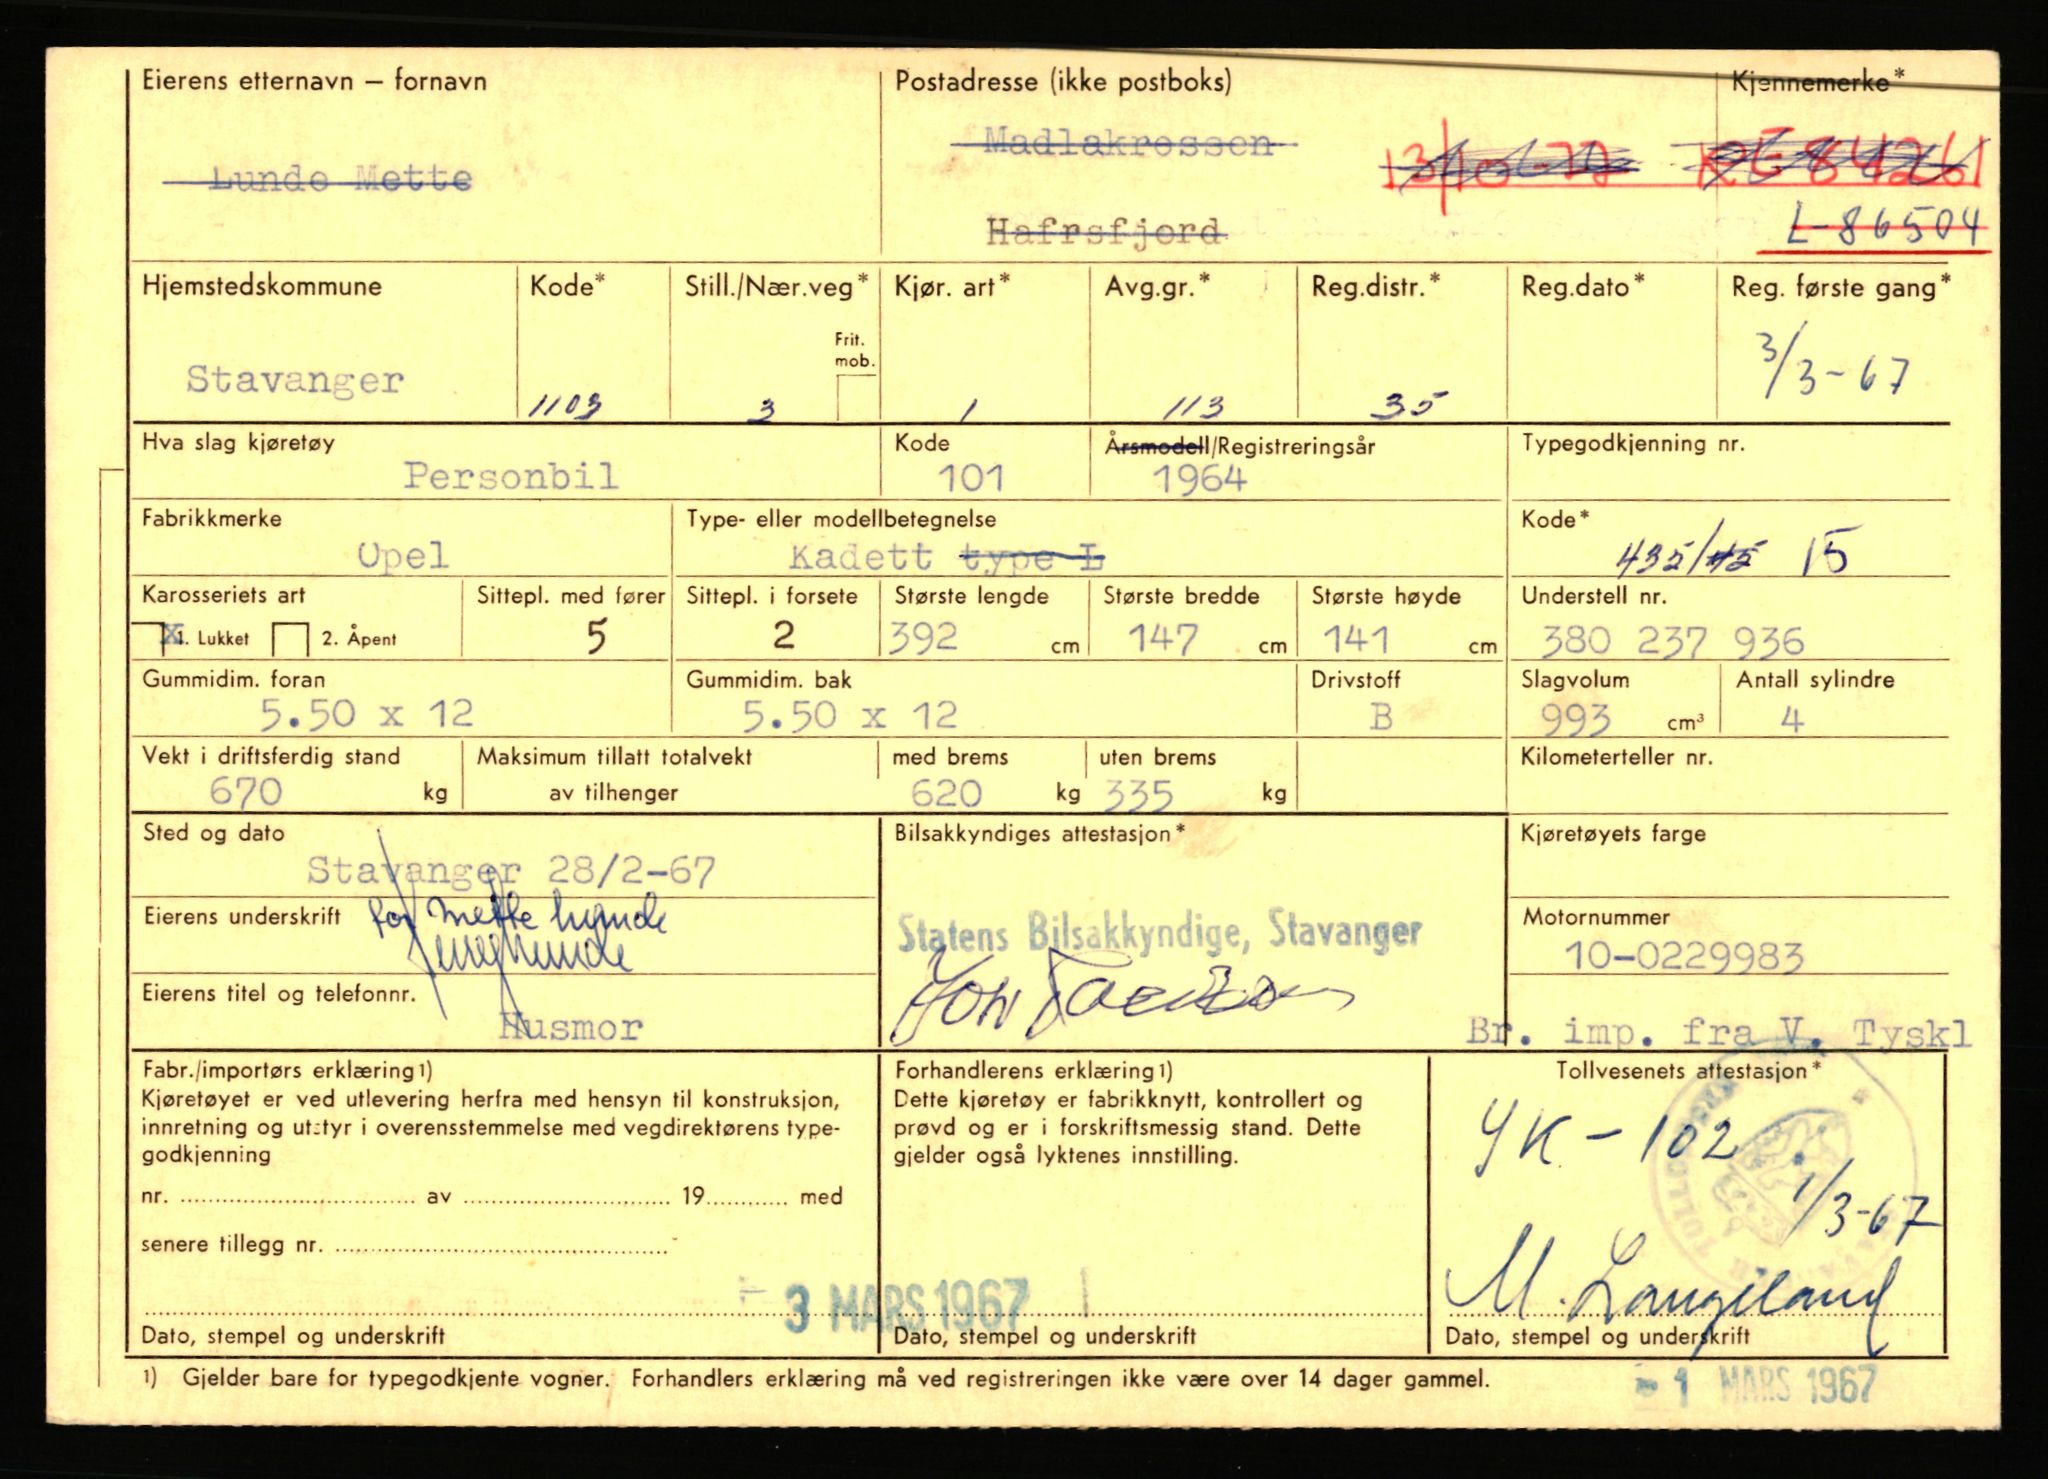 Eierens etternavn – fornavn
Lunde Mette
Postadresse (ikke postboks)
Madlakrossen
Hafrsfjord
Kjennemerke*
L-86504
Hjemstedskommune
Stavanger
Kode*
1103
Still./Nær.veg*
Frit.
mob.
3
Kjør. art*
1
Avg.gr.*
113
Reg.distr.*
35
Reg.dato*
Reg. første gang*
3/3-67
Hva slag kjøretøy
Personbil
Kode
101
Årsmodell/Registreringsår
1964
Typegodkjenning nr.
Fabrikkmerke
Opel
Type- eller modellbetegnelse
Kadett type L
Kode*
435/45 15
Karosseriets art
X 1. Lukket 2. Åpent
Sittepl. med fører
5
Sittepl. i forsete
2
Største lengde
392 cm
Største bredde
147 cm
Største høyde
141 cm
Understell nr.
380 237 936
Gummidim. foran
5.50 x 12
Gummidim. bak
5.50 x 12
Drivstoff
B
Slagvolum
993 cm³
Antall sylindre
4
Vekt i driftsferdig stand
670 kg
Maksimum tillatt totalvekt
av tilhenger
med brems
620 kg
uten brems
335 kg
Kilometerteller nr.
Sted og dato
Stavanger 28/2-67
Bilsakkyndiges attestasjon*
Statens Bilsakkyndige, Stavanger
Kjøretøyets farge
Eierens underskrift
for Mette Lunde
Motornummer
10-0229983
Eierens titel og telefonnr.
Husmor
Br. imp. fra V. Tyskl
Fabr./importørs erklæring1)
Kjøretøyet er ved utlevering herfra med hensyn til konstruksjon,
innretning og utstyr i overensstemmelse med vegdirektørens type-
godkjenning
nr. av 19 med
senere tillegg nr.
Dato, stempel og underskrift
Forhandlerens erklæring1)
Dette kjøretøy er fabrikknytt, kontrollert og
prøvd og er i forskriftsmessig stand. Dette
gjelder også lyktenes innstilling.
- 3 MARS 1967
Dato, stempel og underskrift
Tollvesenets attestasjon*
YK-102
1/3-67
M. Langeland
Dato, stempel og underskrift
1) Gjelder bare for typegodkjente vogner. Forhandlers erklæring må ved registreringen ikke være over 14 dager gammel.
- 1 MARS 1967